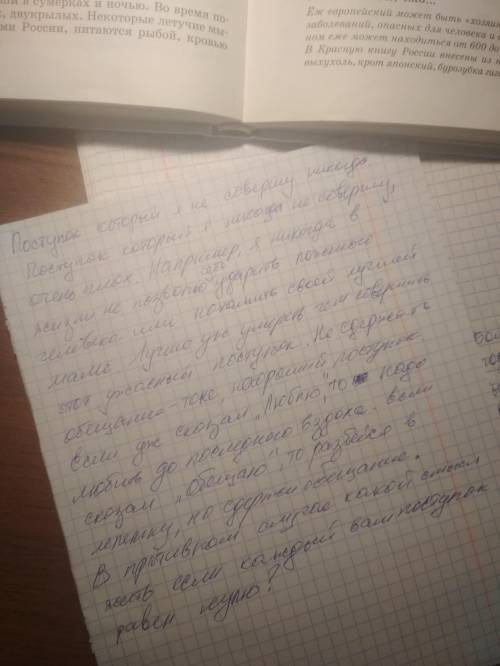 ий в сумерках и ночью. Во время по-
, двукрылых. Некоторые летучие мы-
ми России, питаются рыбой, кровью
Ёж европейский может быть «хозяи
заболеваний, опасных для человека и
ном еже может находиться от 600 до
В Красную книгу России внесены из н
выхухоль, крот японский, бурозубка гиг
Поступок который я не совершу никогда
Поступок который я никогда не совершу,
очень плох. Например, я никогда в
жизни не позволю себе ударить пожилого
человека или нахамить своей лучшей
маме. Лучше уж умереть чем совершить
этот ужасный поступок. Не сдержать
обещание - тоже, нехороший поступок.
Если уж сказал "Люблю", то надо
любить до последнего вздоха. если
сказал "Обещаю", то разбейся в
лепешку, но сдержи обещание.
В противном случае какой смысл
жить если каждый вам поступок
равен нулю?